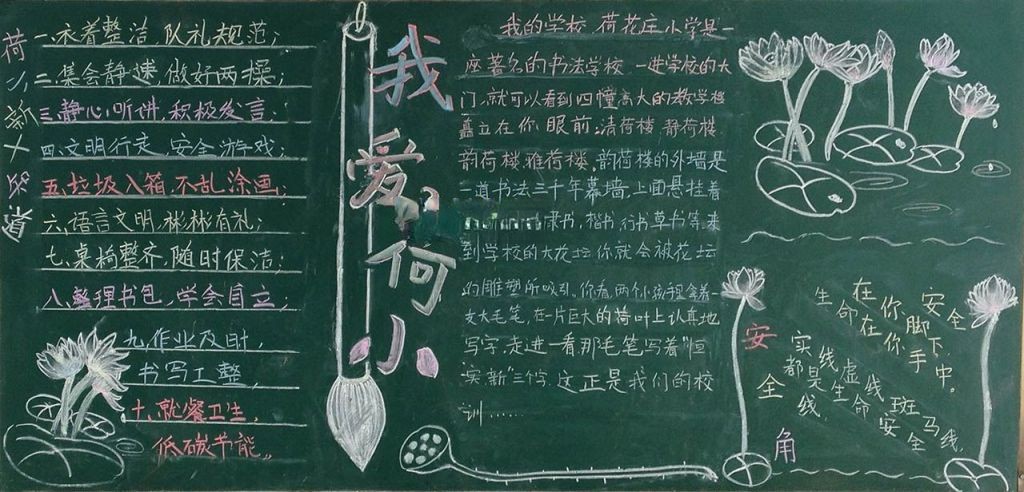 荷小新十条道
一、衣着整洁，队礼规范；
二、集会静速，做好两操；
三、静心听讲，积极发言；
四、文明行走，安全游戏；
五、垃圾入箱，不乱涂画；
六、语言文明，彬彬有礼；
七、桌椅整齐，随时保洁；
八、整理书包，学会自立；
九、作业及时，
书写工整，
十、就餐卫生，
低碳节能。
我爱荷小
我的学校 荷花庄小学是一
座著名的书法学校，一进学校的大
门，就可以看到四幢高大的教学楼
矗立在你眼前：清荷楼 静荷楼
韵荷楼、雅荷楼。韵荷楼的外墙是
一道书法三千年幕墙，上面悬挂着
隶书，楷书，行书草书等，来
到学校的大花坛，你就会被花坛
的雕塑所吸引，你看，两个孩捏拿着一
支大毛笔，在一片巨大的荷叶上认真地
写字，走进一看那毛笔写着“恒
实新”三个字，这正是我们的校
训……
安全角
安全在你脚下，
生命在你手中。
实线虚线斑马线
都是生命安全线